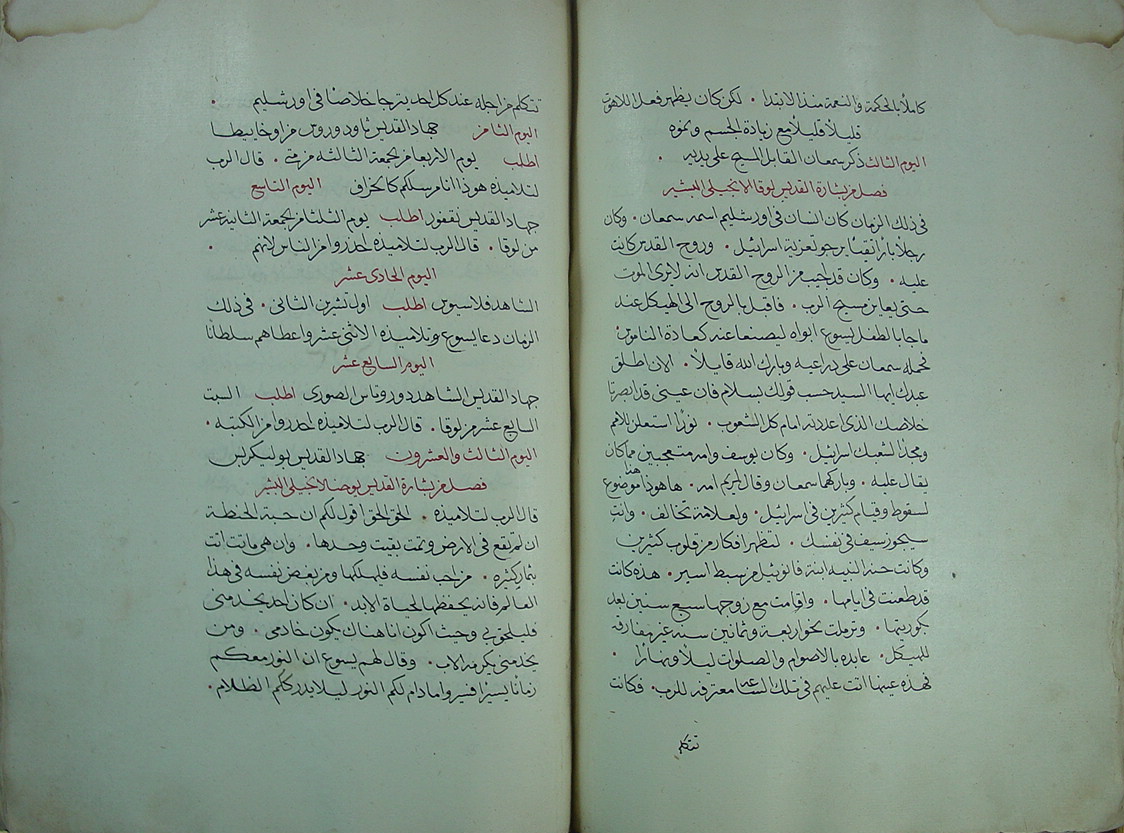 كاملًا بالحكمة والنعمة منذ الابتدا . لكن كان يظهر فعل اللاهوت
قليلًا قليلًا مع زيادة الجسم ونموه
اليوم الثالث ذكر سمعان القابل المسيح على يديه .
فصل من بشارة القديس لوقا الانجيلي البشير
في ذلك الزمان كان انسان في اورشليم اسمه سمعان . وكان
رجلًا بارًا تقيًا يرجو لتعزية اسرائيل . وروح القدس كانت
عليه . وكان قد اجيب من الروح القدس انه لا يرى الموت
حتى يعاين مسيح الرب . فاقبل بالروح الى الهيكل عند
ما جا بالطفل يسوع ابواه ليصنعا عنه كعادة الناموس .
فحمله سمعان على دراعيه وبارك الله قايلًا . الان اطلق
عبدك ايها السيد حسب قولك بسلام فان عيني قد ابصرتا
خلاصك الذي اعددته امام كل الشعوب . نورًا استعلن للامم
ومجدًا لشعبك اسرائيل . وكان يوسف وامه متعجبين مما كان
يقال عليه . وباركهما سمعان وقال لمريم امه . ها هوذا هذا موضوع
لسقوط وقيام كثيرين في اسرائيل . ولعلامة تخالف . وانت
سيجوز سيف في نفسك . لتظهر افكار من قلوب كثيرين
وكانت حنه النبيه ابنة فانوئيل من سبط اسير . هذه كانت
قد طعنت في ايامها . واقامت مع زوجها سبع سنين بعد
بكوريتها . وترملت نحو اربعة وثمانين سنه غير مفارقه
للهيكل . عابده بالاصوام والصلوات ليلًا ونهارًا .
فهذه عينها اتت عليهم في تلك الساعه معترفه للرب . فكانت
تتكلم
تتكلم من اجله عند كل احد يترجا خلاصًا في اورشليم .
اليوم الثامن جهاد القديس ثاودوروس من اوخابيطا
اطلب يوم الاربعا من الجمعة الثالثه من متى . قال الرب
لتلاميذه هوذا انا مرسلكم كالخراف اليوم التاسع
جهاد القديس نقفور اطلب يوم الثلثا من الجمعة الثانية عشر
من لوقا . قال الرب لتلاميذه احذروا من الناس لانهم .
اليوم الحادى عشر
الشاهد فلاسيوس اطلب اول تشرين الثاني . في ذلك
الزمان دعا يسوع وتلاميذه الاثنى عشر واعطاهم سلطانًا
اليوم السابع عشر
جهاد القديس الشاهد دوروتاس الصورى اطلب السبت
السابع عشر من لوقا . قال الرب لتلاميذه احدروا من الكتبه .
اليوم الثالث والعشرون جهاد القديس بوليكربس
فصل من بشارة القديس يوحنا الانجيلي البشير
قال الرب لتلاميذه . الحق الحق اقول لكم ان حبة الحنطة
ان لم تقع في الارض وتمت بقيت وحدها . وان هي ماتت اتت
بثمار كثيره . من احب نفسه فليهلكها ومن يبغض نفسه في هذا
العالم فانه يحفظها لحياة الابد . ان كان احد يخدمني
فليلحق بي وحيث اكون انا هناك يكون خادمي . ومن
يخدمني يكرمه الاب . وقال لهم يسوع ان النور معكم
زمانًا يسيرًا فسيروا ما دام لكم النور ليلا يدرككم الظلام .